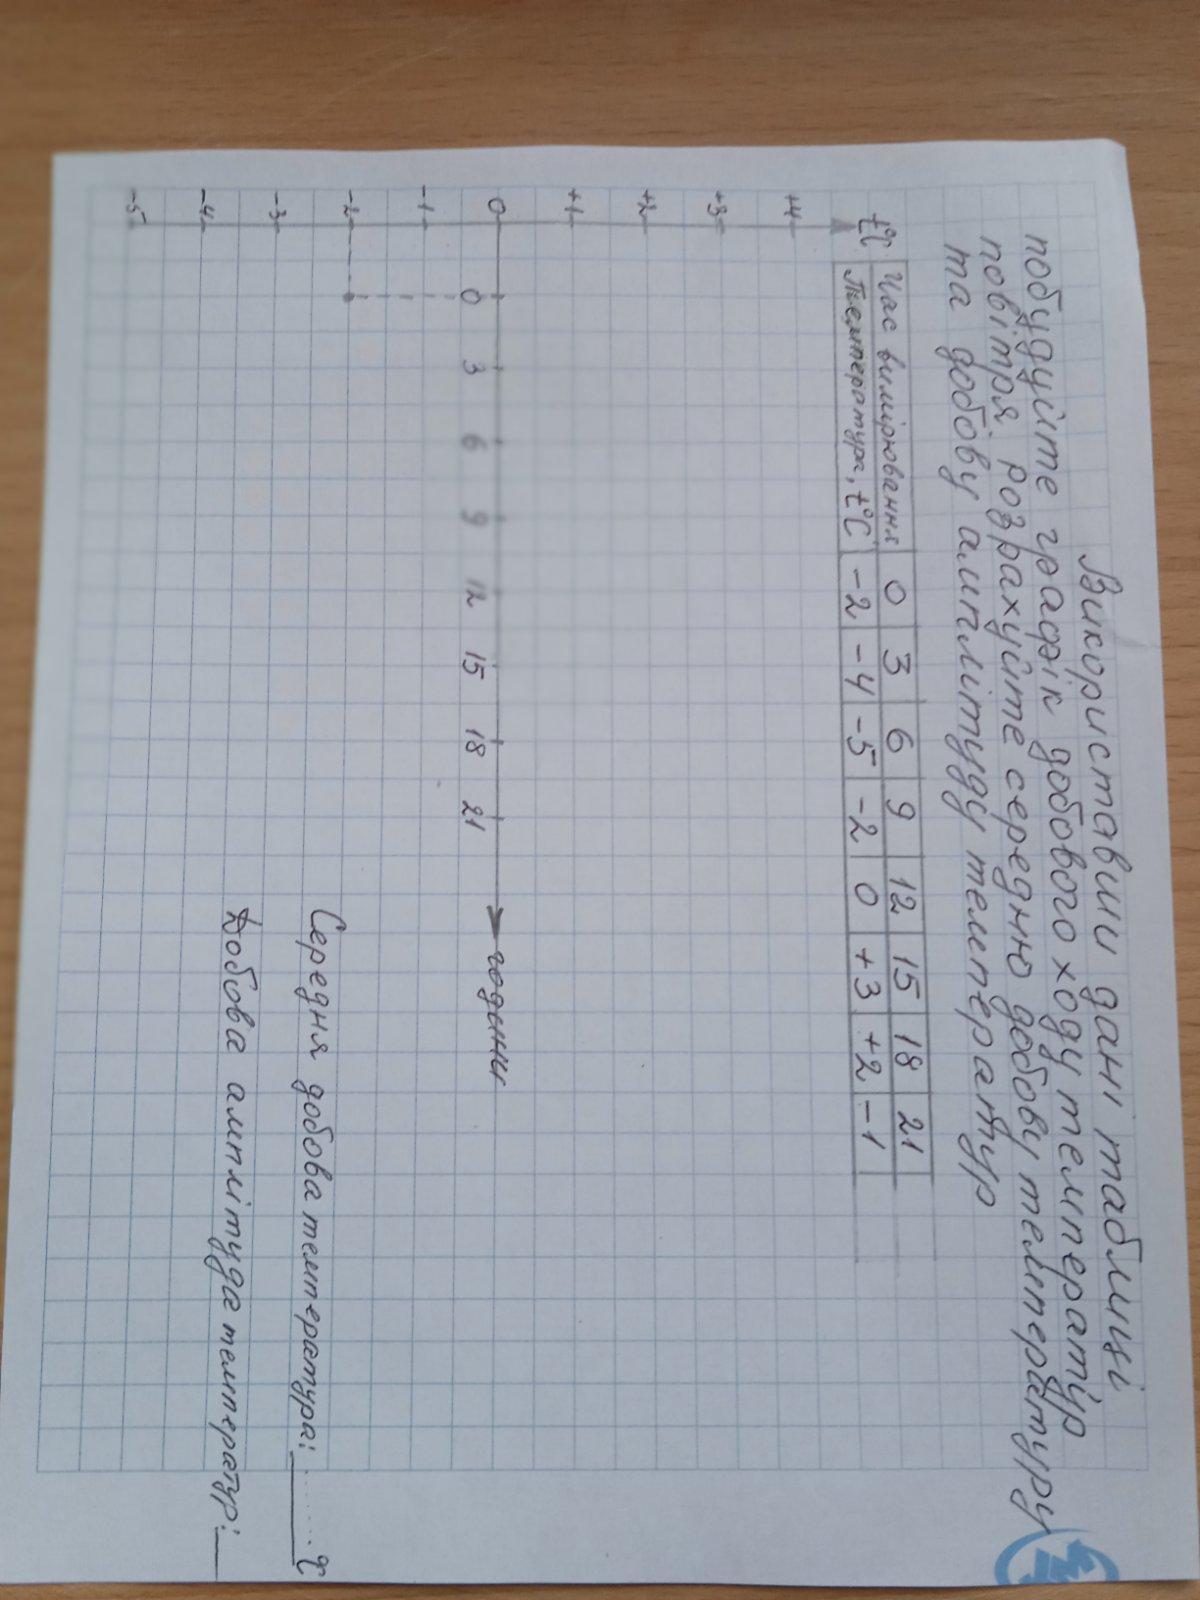 Використавши дані таблиці
побудуйте графік добового ходу температур
повітря. розрахуйте середню добову температуру
та добову амплітуду температур
Час вимірювання 0 3 6 9 12 15 18 21
Температура, t°C -2 -4 -5 -2 0 +3 +2 -1
t°C
+4
+3
+2
+1
0
години
0 3 6 9 12 15 18 21
-1
-2
-3
-4
-5
Середня добова температура: °C
Добова амплітуда температур: